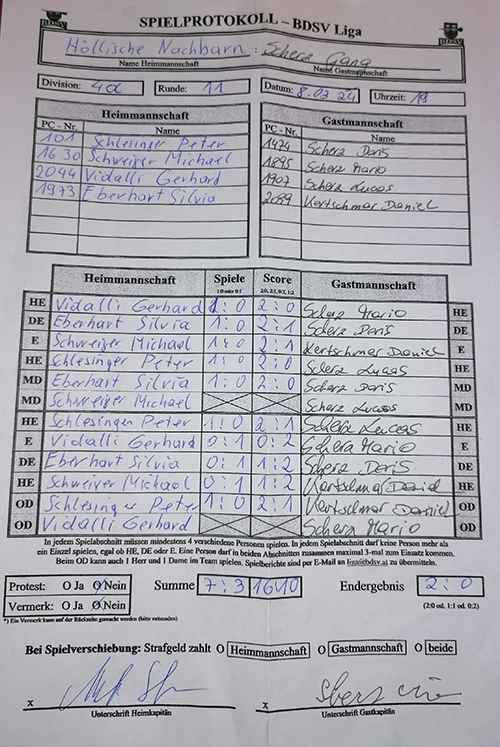 SPIELPROTOKOLL – BDSV Liga
BDSV BDSV
Höllische Nachbarn : Scherz Gang
Name Heimmannschaft Name Gastmannschaft
Division: 4a Runde: 11 Datum: 8.03 24 Uhrzeit: 19
Heimmannschaft Gastmannschaft
PC - Nr. Name PC - Nr. Name
101 Schlesinger Peter 1424 Scherz Doris
1630 Schweiger Michael 1895 Scherz Mario
2094 Vidalli Gerhard 1907 Scherz Lucas
1973 Eberhart Silvia 2099 Kertschmar Daniel
Heimmannschaft Spiele Score Gastmannschaft
1:0 oder 0:1 2:0, 2:1, 0:2, 1:2
HE Vidalli Gerhard 1:0 2:0 Scherz Mario HE
DE Eberhart Silvia 1:0 2:1 Scherz Doris DE
E Schweiger Michael 1:0 2:1 Kertschmar Daniel E
HE Schlesinger Peter 1:0 2:0 Scherz Lucas HE
MD Eberhart Silvia 1:0 2:0 Scherz Doris MD
MD Schweiger Michael Scherz Lucas MD
HE Schlesinger Peter 1:0 2:1 Scherz Lucas HE
E Vidalli Gerhard 0:1 0:2 Scherz Mario E
DE Eberhart Silvia 0:1 1:2 Scherz Doris DE
HE Schweiger Michael 0:1 1:2 Kertschmar Daniel HE
OD Schlesinger Peter 1:0 2:1 Kertschmar Daniel OD
OD Vidalli Gerhard Scherz Mario OD
In jedem Spielabschnitt müssen mindestens 4 verschiedene Personen spielen. In jedem Spielabschnitt darf keine Person mehr als
ein Einzel spielen, egal ob HE, DE oder E. Eine Person darf in beiden Abschnitten zusammen maximal 3-mal zum Einsatz kommen.
Beim OD kann auch 1 Herr und 1 Dame im Team spielen. Spielberichte sind per E-Mail an liga@bdsv.at zu übermitteln.
Protest: O Ja O Nein Summe 7:3 16:10 Endergebnis 2:0
Vermerk: O Ja O Nein (2:0 od. 1:1 od. 0:2)
*) Ein Vermerk kann auf der Rückseite gemacht werden (bitte umseitig)
Bei Spielverschiebung: Strafgeld zahlt O Heimmannschaft O Gastmannschaft O beide
x x
Unterschrift Heimkapitän Unterschrift Gastkapitän